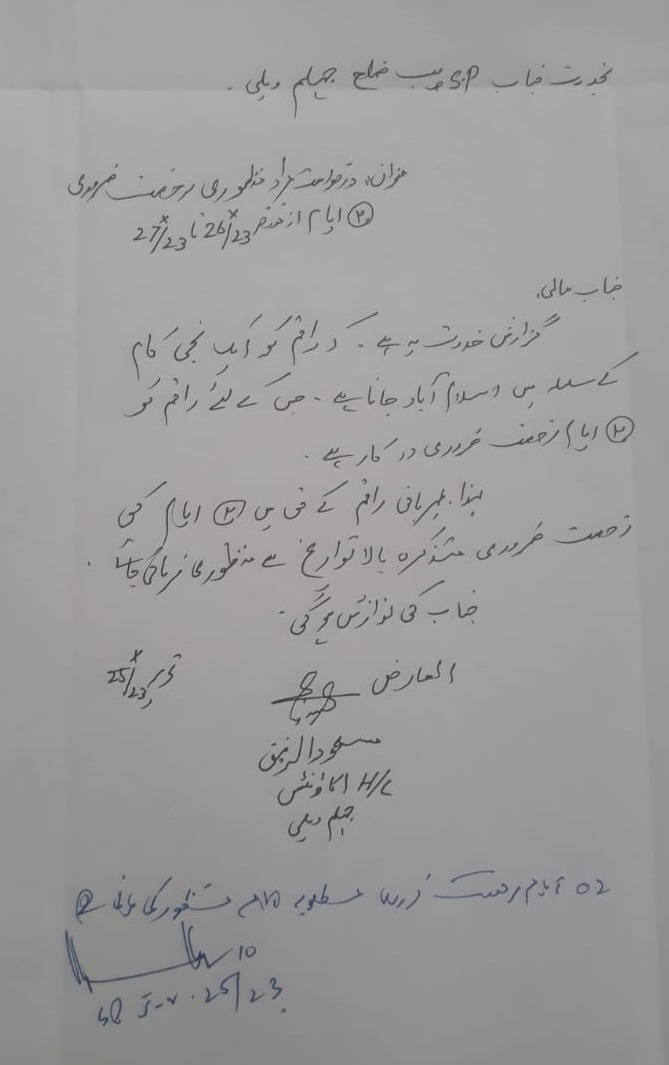 بخدمت جناب S.P صاحب ضلع جہلم ویلی .
عنوان: درخواست بمراد منظوری رخصت ضروری
② ایام از مورخہ 26/x/23 تا 27/x/23
جناب عالی.
گزارش خدمت یہ ہے . کہ راقم کو ایک نجی کام
کے سلسلہ میں اسلام آباد جانا ہے . جس کے لئے راقم کو
② ایام رخصت ضروری درکار ہے .
لہذا بمہربانی راقم کے حق میں ② ایام کی
رخصت ضروری متذکرہ بالا تواریخ سے منظوری فرمائی جائے .
جناب کی نوازش ہو گی .
العارض
تحریر 25/x/23
مسعود الرفیق
H/C اکاؤنٹس
جہلم ویلی
02 ایام رخصت مطلوبہ منظور کی جاتی ہے
10
SP J-V . 25/23